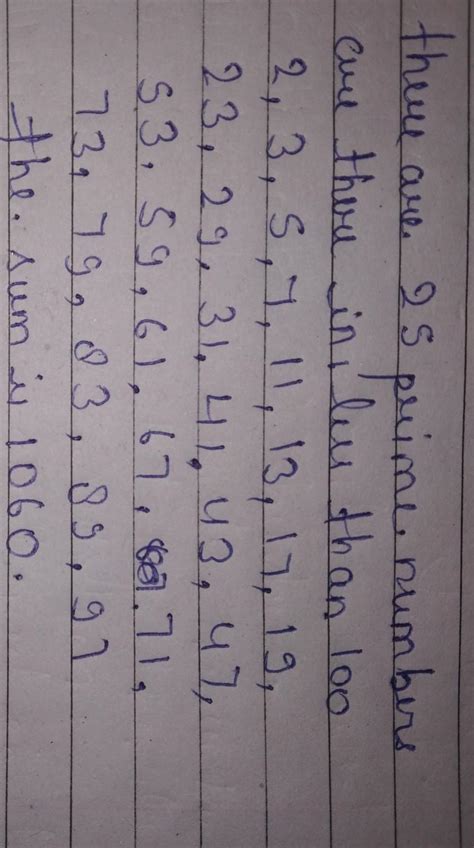 there are 25 prime numbers
are there in, less than 100
2, 3, 5, 7, 11, 13, 17, 19,
23, 29, 31, 41, 43, 47,
53, 59, 61, 67, 71,
73, 79, 83, 89, 97
the sum is 1060.